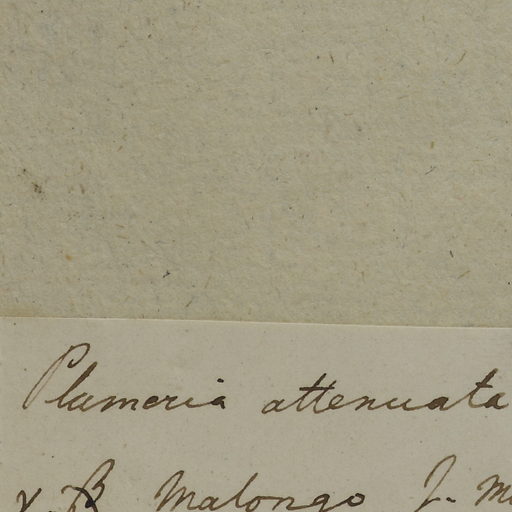 Plumeria attenuata
γ. β Malongo J. M